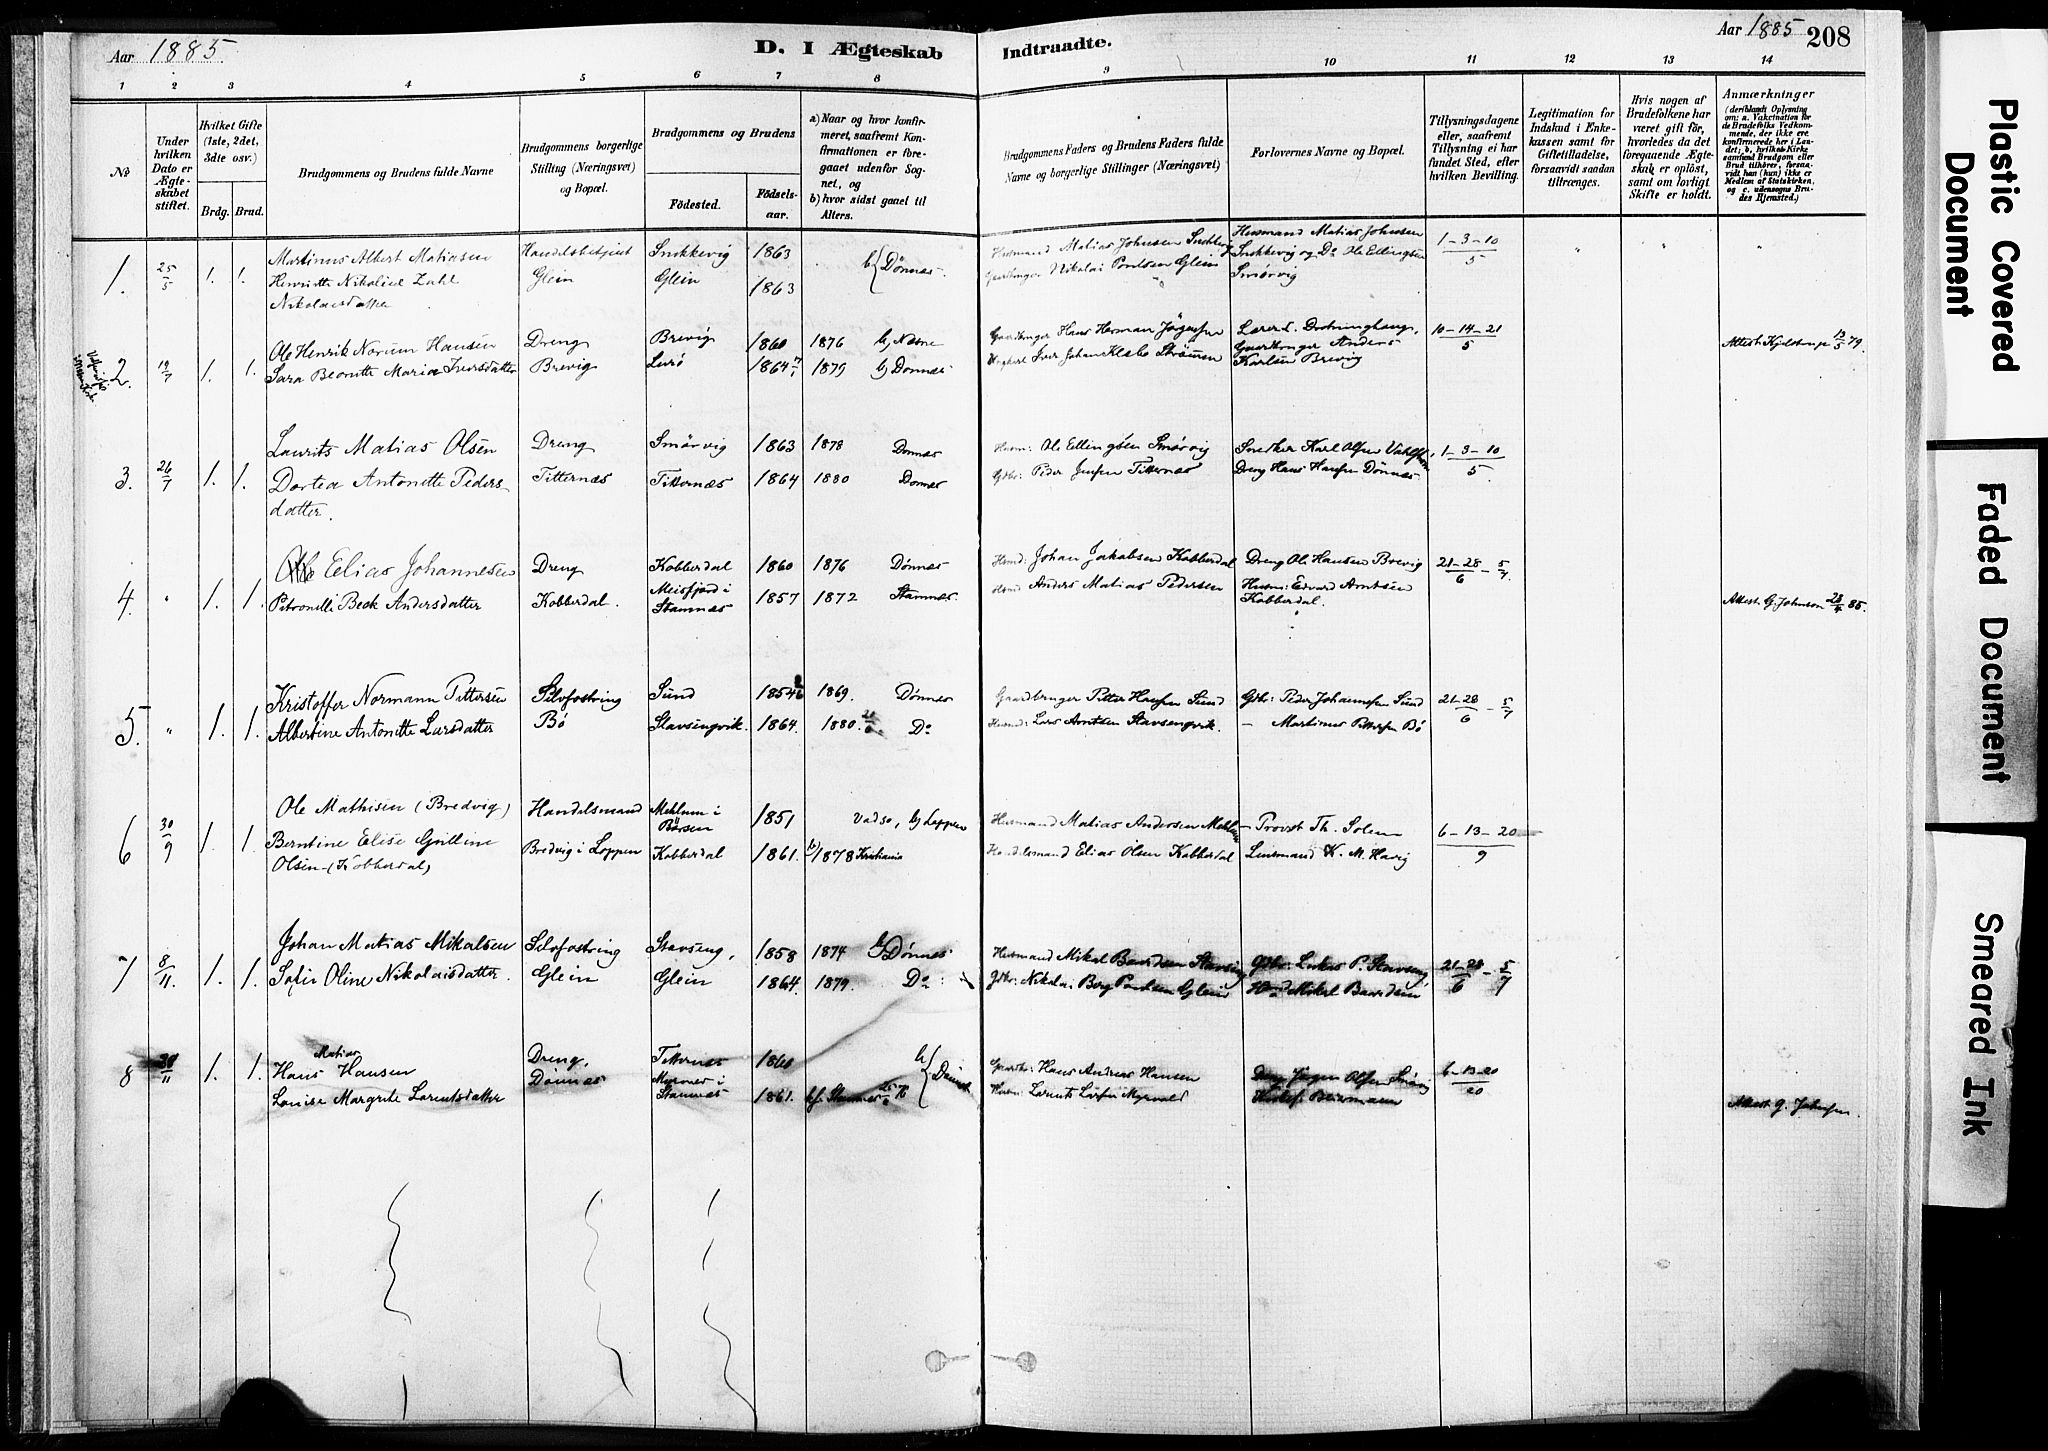 Aar 1885.
D. I Ægteskab
Indtraadte.
Aar 1885
208
1 2 3 4 5 6 7 8 9 10 11 12 13 14
No
Under hvilken Dato er Ægteskabet stiftet.
Hvilket Gifte (1ste, 2det, 3dte osv.)
Brdg. Brud.
Brudgommens og Brudens fulde Navne
Brudgommens borgerlige Stilling (Næringsvei) og Bopæl.
Brudgommens og Brudens
Fødested.
Fødsels-aar.
a) Naar og hvor konfirmeret, saafremt Konfirmationen er foregaaet udenfor Sognet, og
b) hvor sidst gaaet til Alters.
Brudgommens Faders og Brudens Faders fulde Navne og borgerlige Stillinger (Næringsvei)
Forlovernes Navne og Bopæl.
Tillysningsdagene eller, saafremt Tillysning ei har fundet Sted, efter hvilken Bevilling.
Legitimation for Indskud i Enkekassen samt for Giftetilladelse, forsaavidt saadan tiltrænges.
Hvis nogen af Brudefolkene har været gift før, hvorledes da det foregaaende Ægteskab er opløst, samt om lovligt Skifte er holdt.
Anmærkninger
(deriblandt Oplysning om: a. Vakcination for de Brudefolks Vedkommende, der ikke ere konfirmerede her i Landet; b. hvilken Kirke samfund Brudgom eller Brud tilhører, forsaavidt han (hun) ikke er Medlem af Statskirken, og c. udensogns Brudes Hjemsted.)
1. 25/5 1. 1.
Martinus Albert Matiasen Handelsbetjent Snekkevig 1863 b) Dønnes
Henriette Nikoline Zahl Glein Glein 1863
Nikolaisdatter
Husmand Matias Johnsen Snekkevig
Gaardbruger Nikolai Pontsen Glein
Husmand Matias Johnsen
Snekkevig og Do Ole Ellingsen
Smørvig
1–3–10/5
2. 19/7 1. 1.
Ole Henrik Norum Hansen Dreng Brevig 1860 1876 b) Nesne
Sara Beonette Maria Iversdatter Brevig Lurø 1864 1879 b) Dønnes
Gaardbruger Hans Herman Jørgensen
Ungkarl Iver Johan Klebo Strømsen
Lærer L. Drotninghaug,
Gaardbruger Anders
Karlsen Brevig
10–14–21/5
Attest: Kjelstrup 13/5 79.
3. 26/7 1. 1.
Laurits Matias Olsen Dreng Smørvig 1863 1878 Dønnes
Dortea Antonette Peders- Titternæs Titternæs 1864 1880 Dønnes
datter.
Husm: Ole Ellingsen Smørvig
Gdbr: Peder Jensen Titternæs
Snekker Karl Olsen
Dreng Hans Hansen Dønnes
1–3–10/5
4. " 1. 1.
Ole Elias Johannesen Dreng Kobberdal 1860 1876 Dønnes
Petronelle Beck Andersdatter Kobberdal. Meisfjord i Stamnæs 1857 1872 Stamnæs.
Hsmd: Johan Jakobsen Kobberdal
Hsmd Anders Matias Pedersen
Dreng Ole Hansen Brevig
Husm: Edvard Arntsen
Kobberdal.
21–28/6 – 5/7
Attest. G. Johnson 23/4 85.
5. " 1. 1.
Kristoffer Normann Pettersen Selvfostring Sund 1854 1869. Dønnes
Albertine Antonette Larsdatter Bø Stavsengvik. 1864. 1880. Do
Gaardbruger Petter Hansen Sund
Husmd: Lars Arntsen Stavsengvik.
Gdbr: Peder Johannesen Sund
— Martinus Pettersen Bø
21–28/6 – 5/7
6 30/9 1. 1.
Ole Mathisen (Bredvig) Handelsmand Mehlum i Børsen 1851 Vadsø, b) Loppen
Berntine Elise Gulline Bredvig i Loppen Kobberdal 1861. b) 1878 Kristiania
Olsen (Kobberdal)
Husmand Matias Andersen Mehlum
Handelsmand Elias Olsen Kobberdal
Provst Th. Solem
Lensmand K. M. Havig
6–13–20/9
7 8/11 1. 1.
Johan Matias Mikalsen Selvfostring Stavseng, 1858 1874 b) Dønnes
Sofie Oline Nikolaisdatter. Glein Glein 1864. 1879. Do
Husmand Mikal Baardsen Stavseng
Gdbr: Nikolai Berg Pontsen Glein
Gdbr: Lukas P. Stavseng,
Hsmd Mikal Baardsen
21–28/6 – 5/7
8 30/11 1. 1.
Matias
Hans Hansen Dreng, Titternæs 1860 b) Dønnes
Louise Margrete Lorentsdatter Dønnes Stamnæs 1861.
Gaardbr: Hans Andreas Hansen
Husm: Lorents Larsen Myrvold
Dreng Jørgen Olsen Smørvig
6–13–20/20
Attest. G. Johnsen.
Plastic Covered Document
Faded Document
Smeared Ink